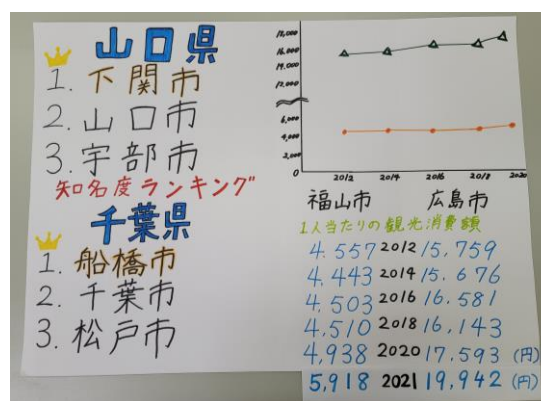 山口県
1. 下関市
2. 山口市
3. 宇部市
知名度ランキング
千葉県
1. 船橋市
2. 千葉市
3. 松戸市
18,000
16,000
14,000
12,000
6,000
4,000
2,000
0
2012 2014 2016 2018 2020
福山市 広島市
1人当たりの観光消費額
4.557 2012 15,759
4.443 2014 15.676
4.503 2016 16.581
4,510 2018 16,143
4,938 2020 17.593 (円)
5,918 2021 19,942 (円)